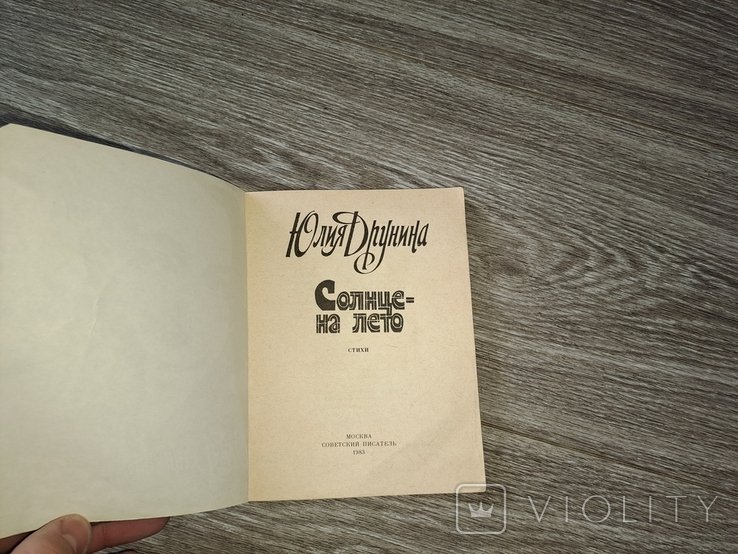 Юлия Друнина
Солнце-
на лето
СТИХИ
МОСКВА
СОВЕТСКИЙ ПИСАТЕЛЬ
1983
VIOLITY